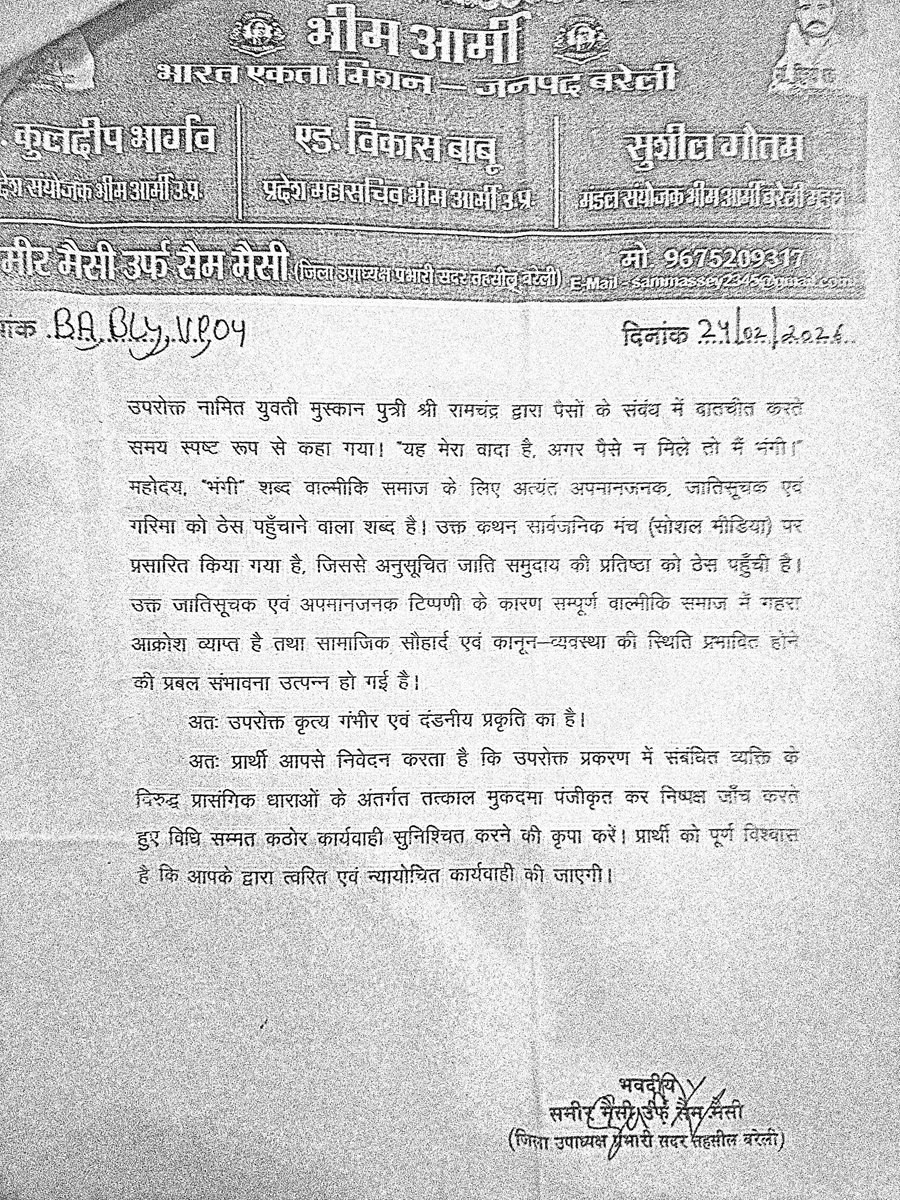 भीम आर्मी
भारत एकता मिशन – जनपद बरेली
कुलदीप भार्गव
एड. विकास बाबू
सुशील गौतम
संयोजक भीम आर्मी उ.प्र.
प्रदेश महासचिव भीम आर्मी उ.प्र.
मंडल संयोजक भीम आर्मी बरेली मंडल
मीर मैसी उर्फ सैम मैसी (जिला उपाध्यक्ष प्रभारी सदर तहसील बरेली)
मो. 9675209317
E-Mail - sammassey2345@gmail.com
BA, BLY, V.P04
दिनांक 24/02/2026
उपरोक्त नामित युवती मुस्कान पुत्री श्री रामचंद्र द्वारा पैसों के संबंध में बातचीत करते
समय स्पष्ट रूप से कहा गया। "यह मेरा वादा है, अगर पैसे न मिले तो मैं भंगी।"
महोदय, "भंगी" शब्द वाल्मीकि समाज के लिए अत्यंत अपमानजनक, जातिसूचक एवं
गरिमा को ठेस पहुँचाने वाला शब्द है। उक्त कथन सार्वजनिक मंच (सोशल मीडिया) पर
प्रसारित किया गया है, जिससे अनुसूचित जाति समुदाय की प्रतिष्ठा को ठेस पहुँची है।
उक्त जातिसूचक एवं अपमानजनक टिप्पणी के कारण सम्पूर्ण वाल्मीकि समाज में गहरा
आक्रोश व्याप्त है तथा सामाजिक सौहार्द एवं कानून–व्यवस्था की स्थिति प्रभावित होने
की प्रबल संभावना उत्पन्न हो गई है।
अतः उपरोक्त कृत्य गंभीर एवं दंडनीय प्रकृति का है।
अतः प्रार्थी आपसे निवेदन करता है कि उपरोक्त प्रकरण में संबंधित व्यक्ति के
विरुद्ध प्रासंगिक धाराओं के अंतर्गत तत्काल मुकदमा पंजीकृत कर निष्पक्ष जाँच करते
हुए विधि सम्मत कठोर कार्यवाही सुनिश्चित करने की कृपा करें। प्रार्थी को पूर्ण विश्वास
है कि आपके द्वारा त्वरित एवं न्यायोचित कार्यवाही की जाएगी।
भवदीय
समीर मैसी उर्फ सैम मैसी
(जिला उपाध्यक्ष प्रभारी सदर तहसील बरेली)